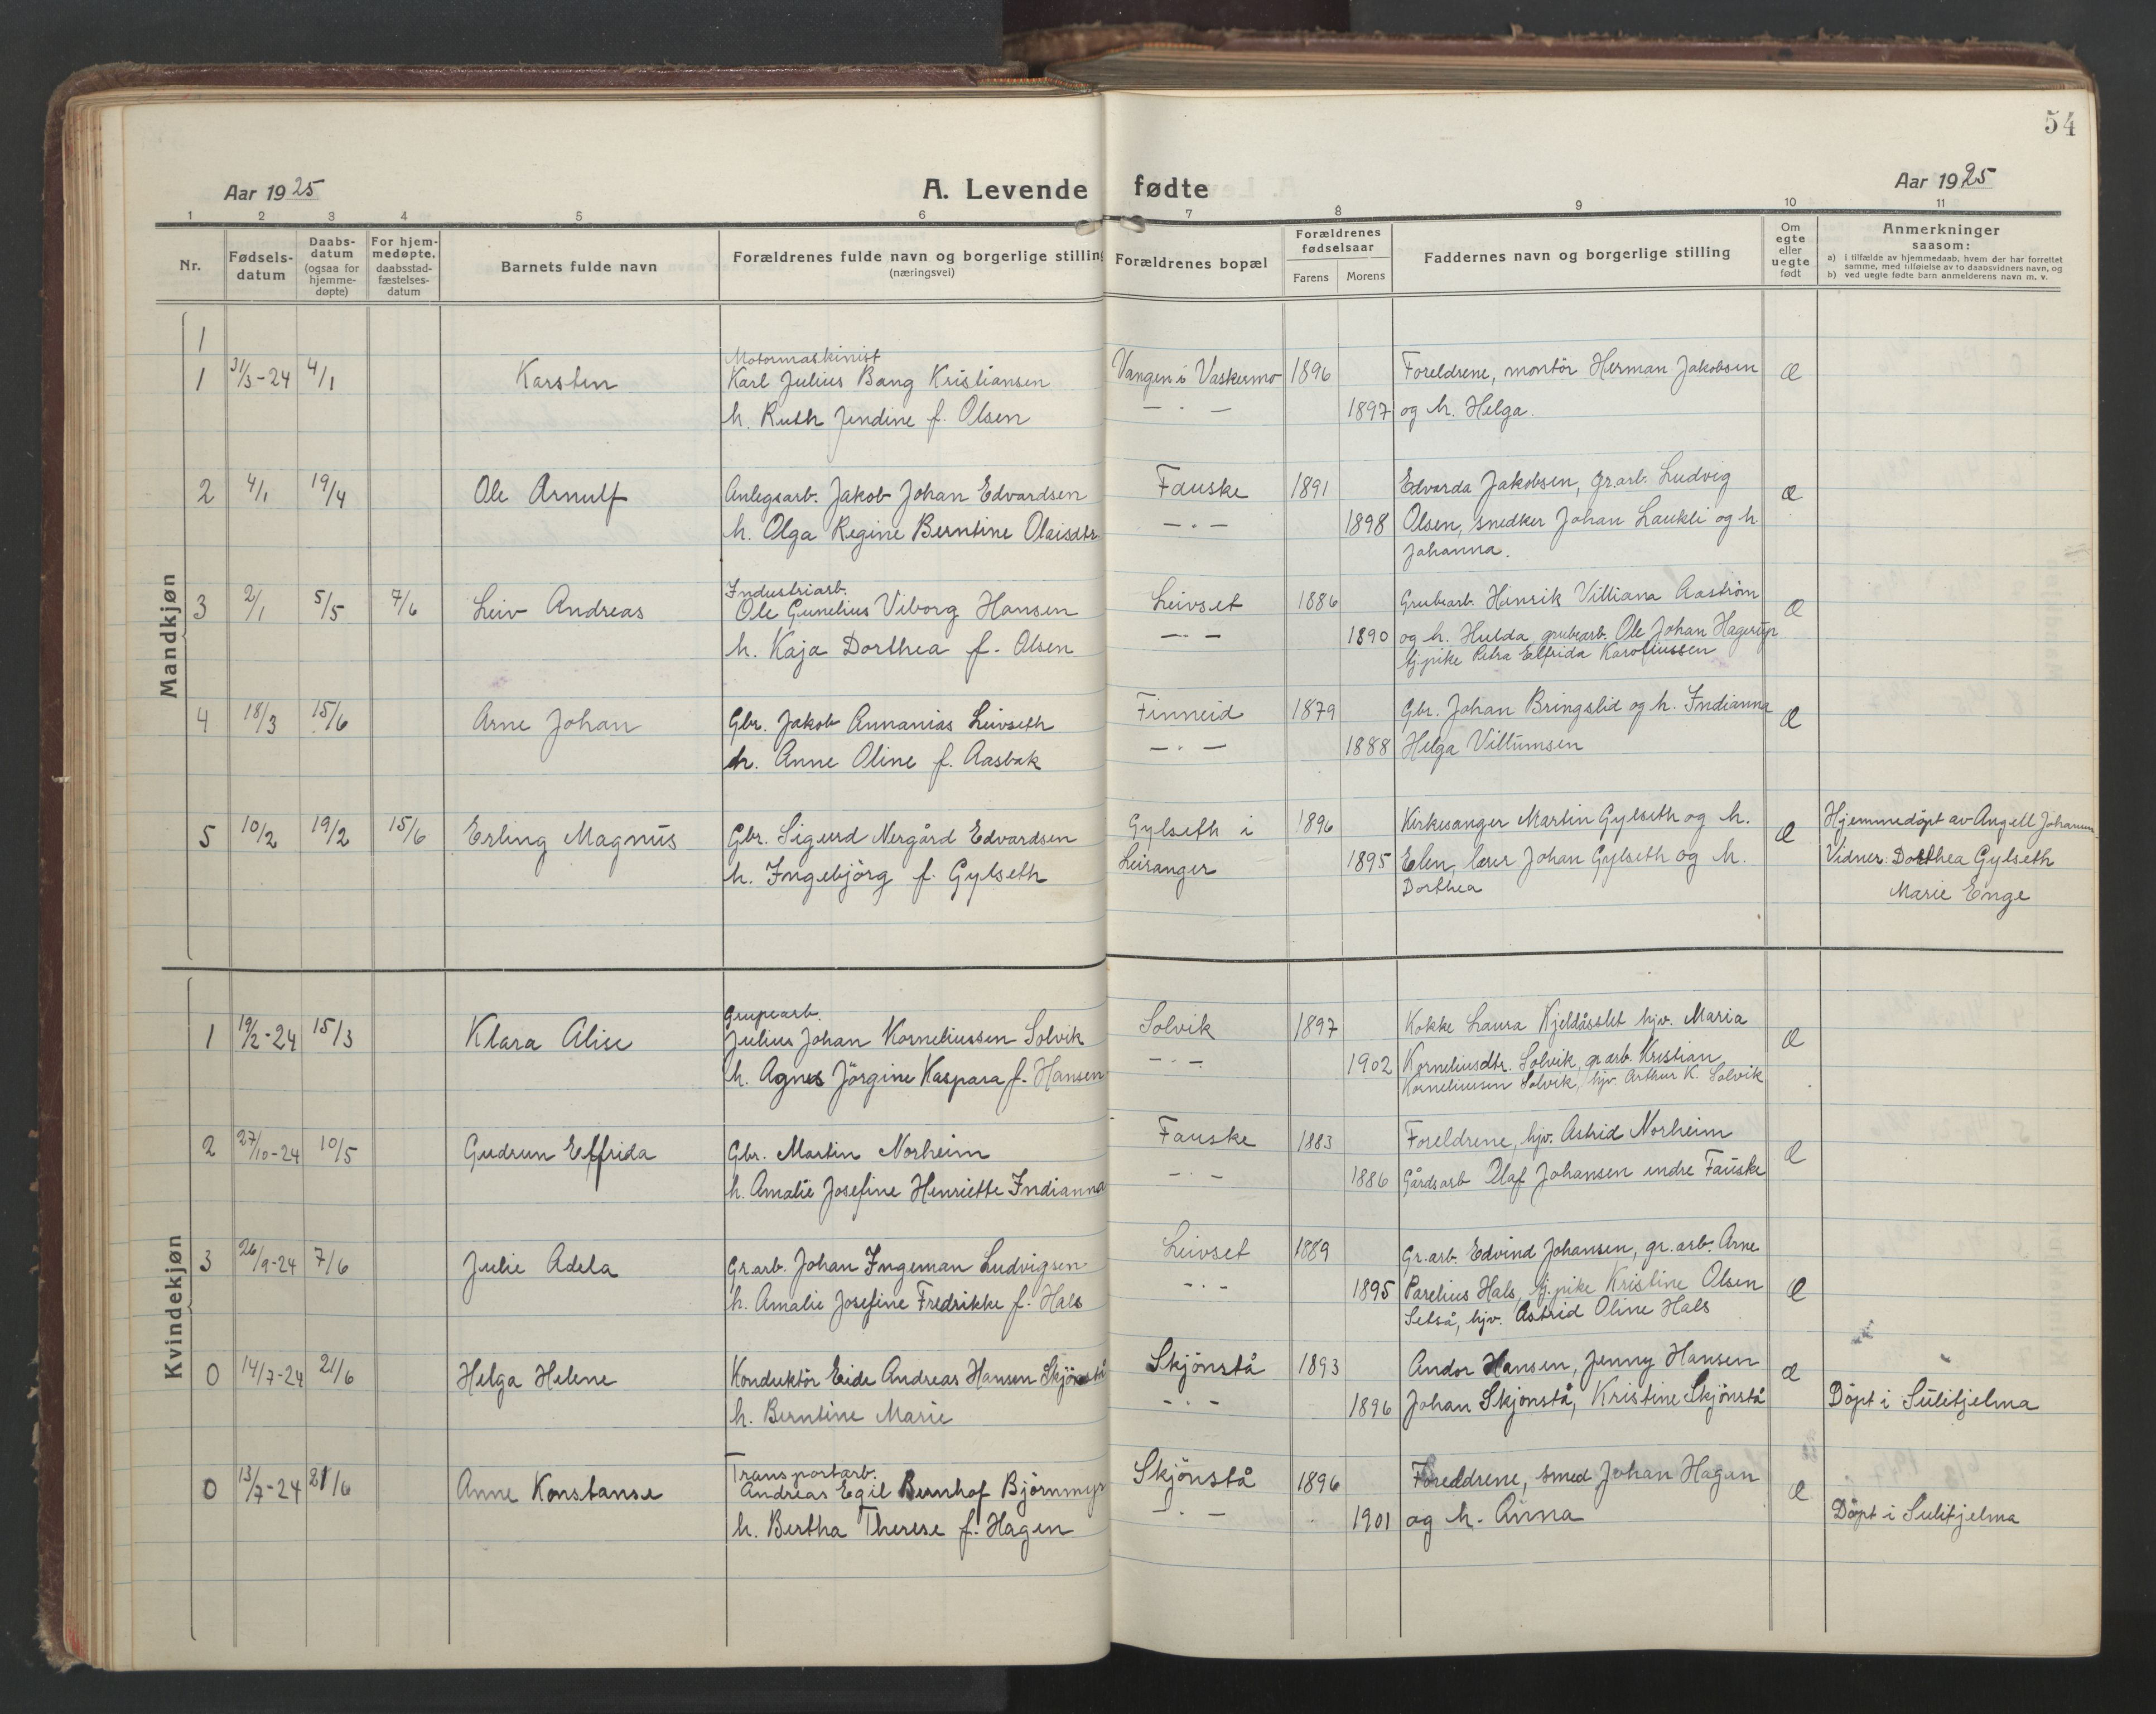 54
Aar 1925 A. Levende fødte Aar 1925
1 2 3 4 5 6 7 8 9 10 11
Nr.
Fødsels-
datum
Daabs-
datum
(ogsaa for
hjemme-
døpte)
For hjem-
medøpte,
daabsstad-
fæstelses-
datum
Barnets fulde navn
Forældrenes fulde navn og borgerlige stilling
(næringsvei)
Forældrenes bopæl
Forældrenes
fødselsaar
Farens Morens
Faddernes navn og borgerlige stilling
Om
egte
eller
uegte
født
Anmerkninger
saasom:
a) i tilfælde av hjemmedaab, hvem der har forrettet
samme, med tilføielse av to daabsvidners navn, og
b) ved uegte fødte barn anmelderens navn m. v.
Mandkjøn
1
Motormaskinist
1 31/3-24 4/1 Karsten Karl Julius Bang Kristiansen Vangen i Vaskermo 1896 Foreldrene, montör Herman Jakobsen Æ
h. Ruth Jendine f. Olsen — · — 1897 og h. Helga.
2 4/1 19/4 Ole Arnulf Anlegsarb. Jakob Johan Edvardsen Fauske 1891 Edvarda Jakobsen, gr.arb. Ludvig Æ
h. Olga Regine Berntine Olaisdtr. — · — 1898 Olsen, snedker Johan Laukli og h.
Johanna.
Industriarb.
3 2/1 5/5 7/6 Leiv Andreas Ole Gunelius Viborg Hansen Leivset 1886 Grubearb. Henrik Villiana Aaström Æ
h. Kaja Dorthea f. Olsen — · — 1890 og h. Hulda, grubearb. Ole Johan Hagerup
tj.pike Petra Elfrida Karoliussen
4 18/3 15/6 Arne Johan Gbr. Jakob Annanias Leivseth Finneid 1879 Gbr. Johan Bringslid og h. Indianna Æ
h. Anne Oline f. Aasbak — · — 1888 Helga Villumsen
5 10/2 19/2 15/6 Erling Magnus Gbr. Sigurd Nergård Edvardsen Gylseth i 1896 Kirkesanger Martin Gylseth og h. Æ Hjemmedöpt av Angell Johansen.
h. Ingebjörg f. Gylseth Leiranger 1895 Elen, lærer Johan Gylseth og h. Vidner: Dorthea Gylseth
Dorthea Marie Enge
Kvindekjøn
Grupearb.
1 19/2-24 15/3 Klara Alise Julius Johan Korneliussen Solvik Solvik 1897 Kokke Laura Kjeldåsslet hjv. Maria Æ
h. Agnes Jörgine Kaspara f. Hansen — · — 1902 Korneliusdtr. Solvik, gr.arb. Kristian
Korneliussen Solvik, hjv. Arthur K. Solvik
2 27/10-24 10/5 Gudrun Elfrida Gbr. Martin Norheim Fauske 1883 Foreldrene, hjv. Astrid Norheim Æ
h. Amalie Josefine Henriette Indianna — · — 1886 Gårdsarb Olaf Johansen indre Fauske
3 26/9-24 7/6 Julie Adela Gr.arb. Johan Ingeman Ludvigsen Leivset 1889 Gr.arb. Edvind Johansen, gr.arb. Arne
h. Amalie Josefine Fredrikke f. Hals — · — 1895 Parelius Hals, tj.pike Kristine Olsen Æ
Setså, hjv. Astrid Oline Hals
0 14/7-24 21/6 Helga Helene Konduktör Eide Andreas Hansen Skjönstå Skjönstå 1893 Andor Hansen, Jenny Hansen Æ
h. Berntine Marie — · — 1896 Johan Skjönstå, Kristine Skjönstå Döpt i Sulitjelma
Transportarb.
0 13/7-24 21/6 Anne Konstanse Andreas Egil Bernhof Björnmyr Skjönstå 1896 Foreldrene, smed Johan Hagen Æ
h. Bertha Therese f. Hagen — · — 1901 og h. Anna Döpt i Sulitjelma